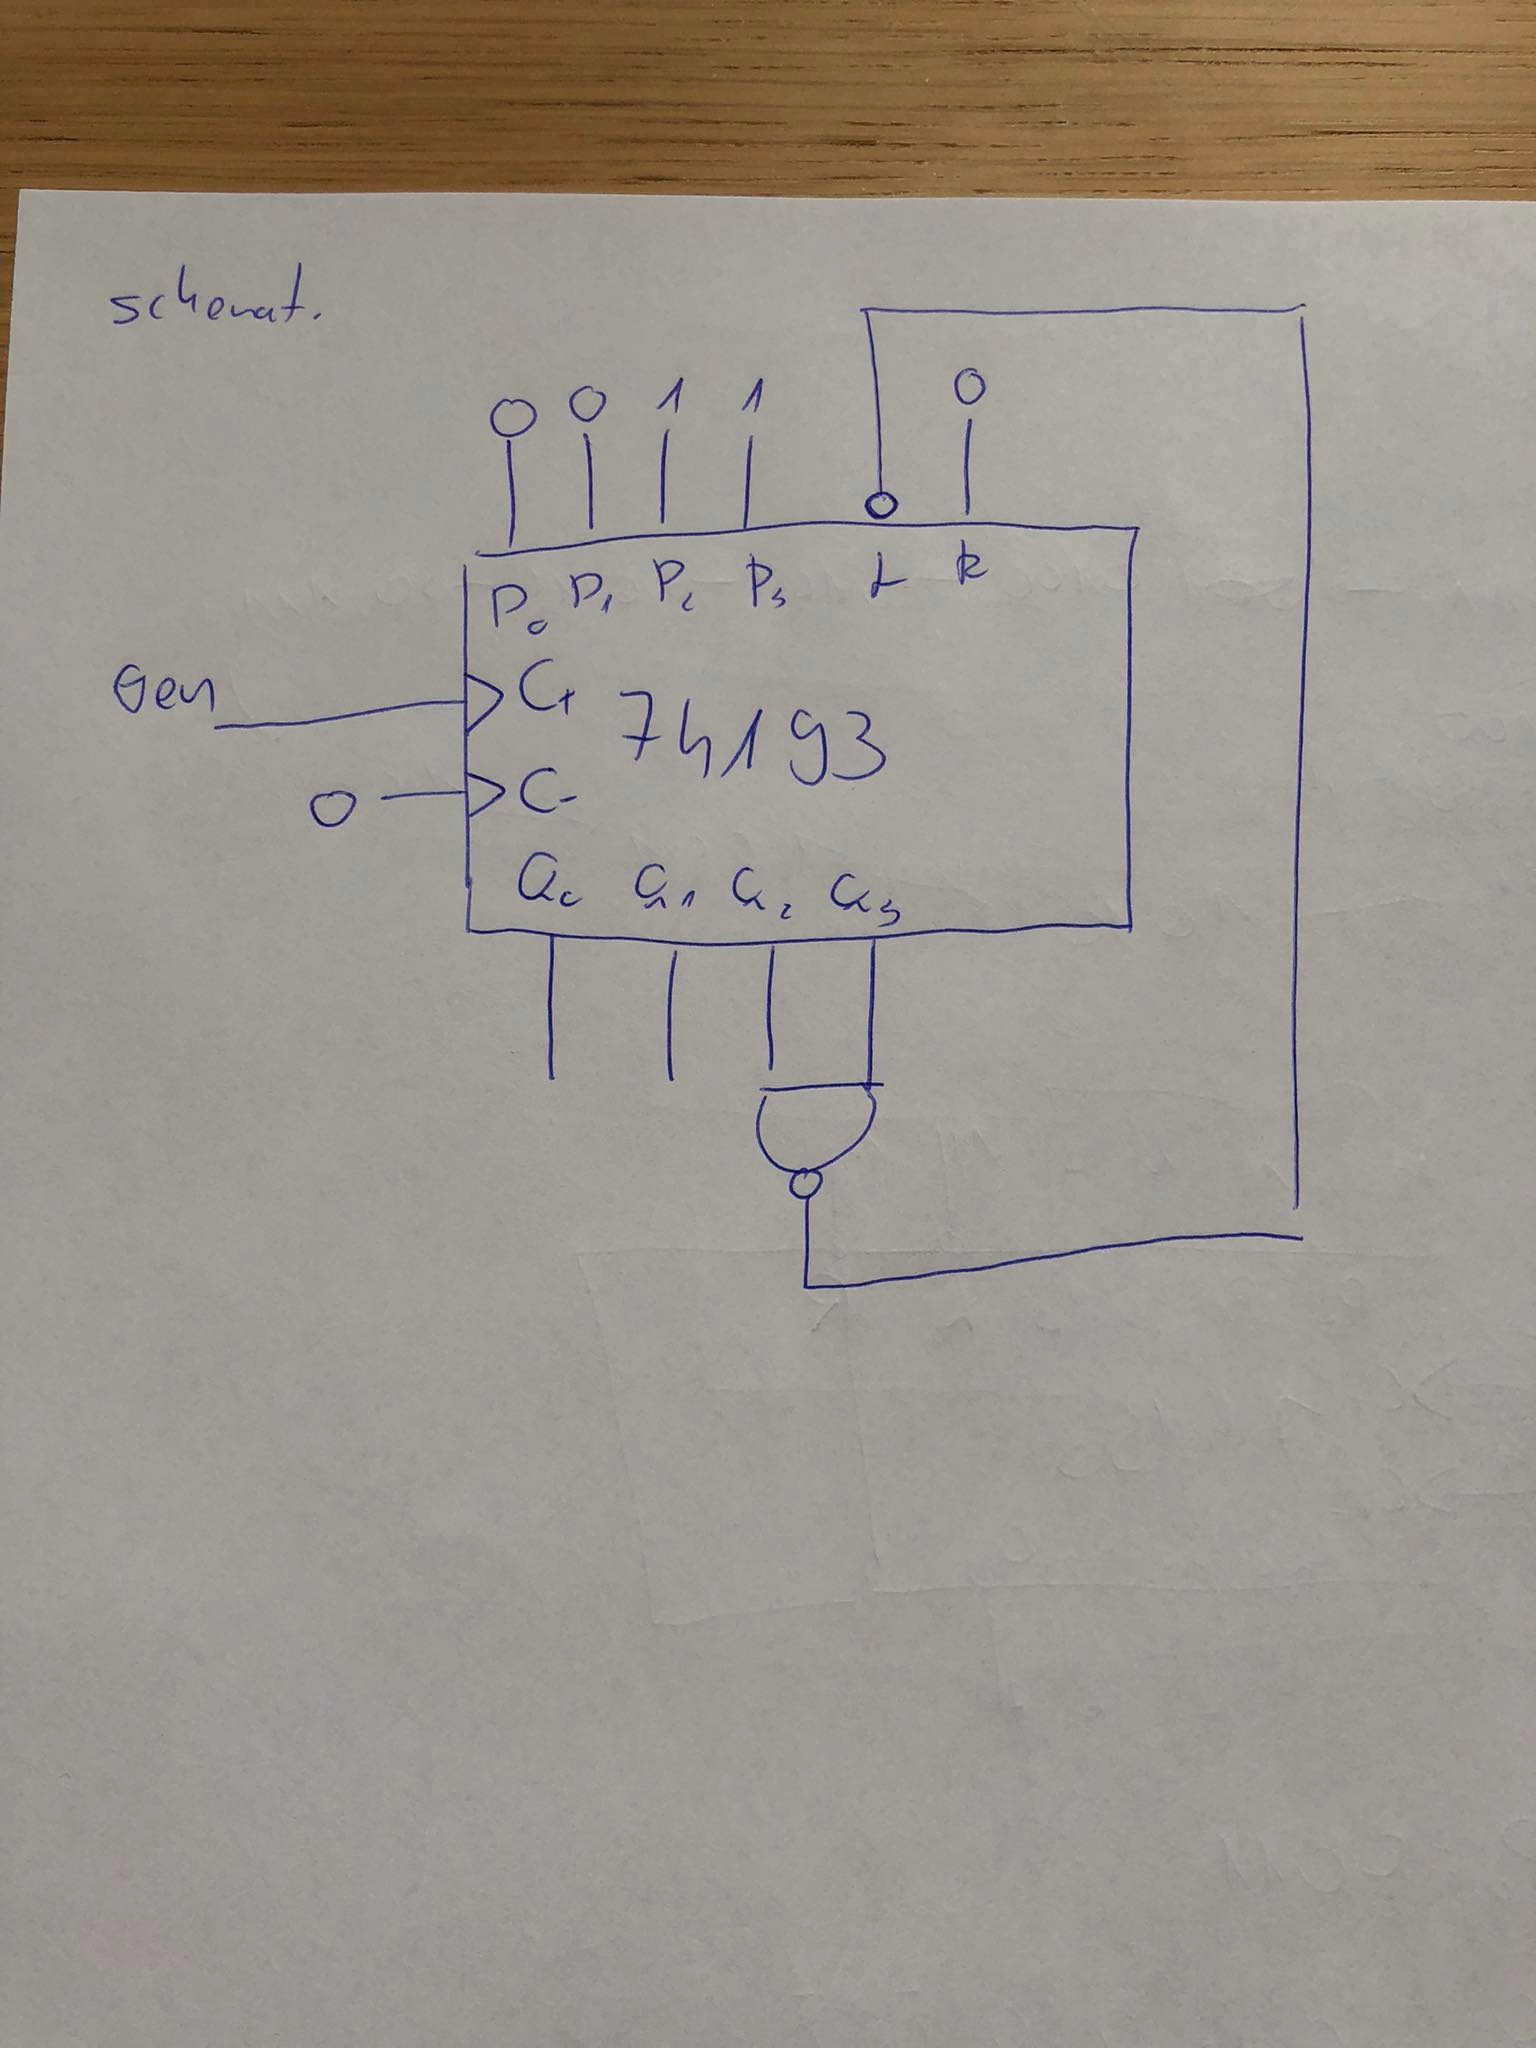 schemat.
0 0 1 1 0
P0 P1 P2 P3 L R
Gen C+ 74193
0 C-
Q0 Q1 Q2 Q3